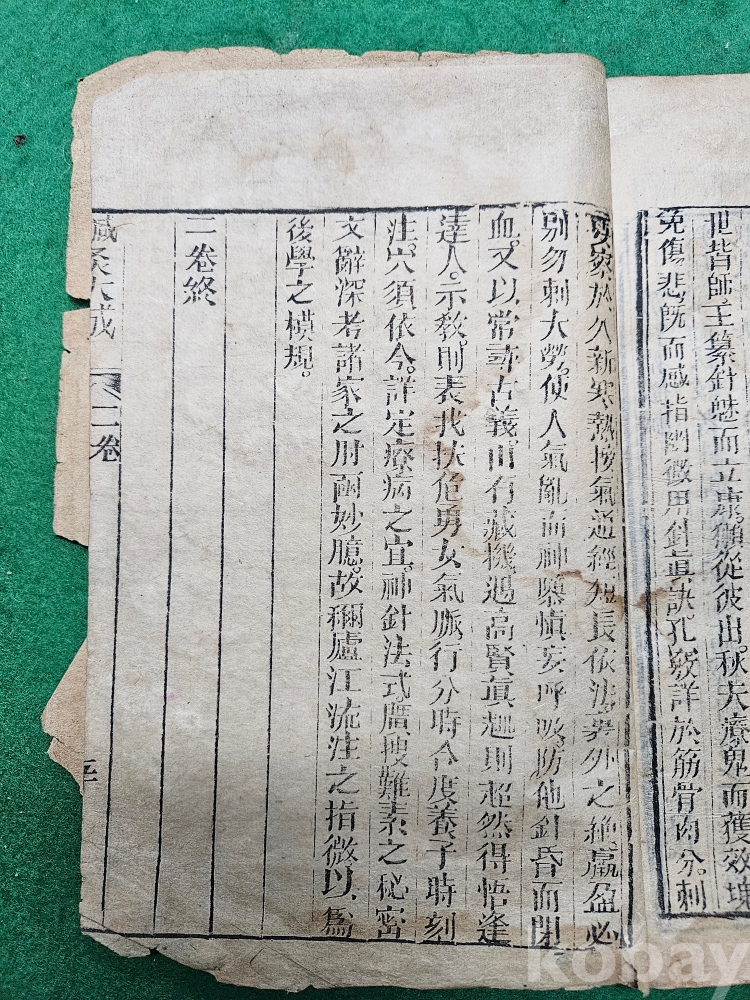 世皆師。主纂針魅而立康。獺從彼出。秋夫療鬼而獲效。塊
免傷悲。旣而感指幽微。用針眞訣。孔竅詳於筋骨肉分。刺
要察於久新寒熱。接氣通經。短長依法。裏外之絶。羸盈必
別。勿刺大勞。使人氣亂而神隳。愼妄呼吸。防他針昏而閉
血。又以常尋古義。由有藏機。遇高賢眞趣。則超然得悟。逢
達人。示敎。則表我扶危。男女氣脈。行分時合度。養子時刻
注穴。須依今。詳定療病之宜。神針法式。廣搜難素之秘密
文辭。深考諸家之肘函妙臆。故稱廬江流注之指微。以爲
後學之模規。
二卷終
鍼灸大成
二卷